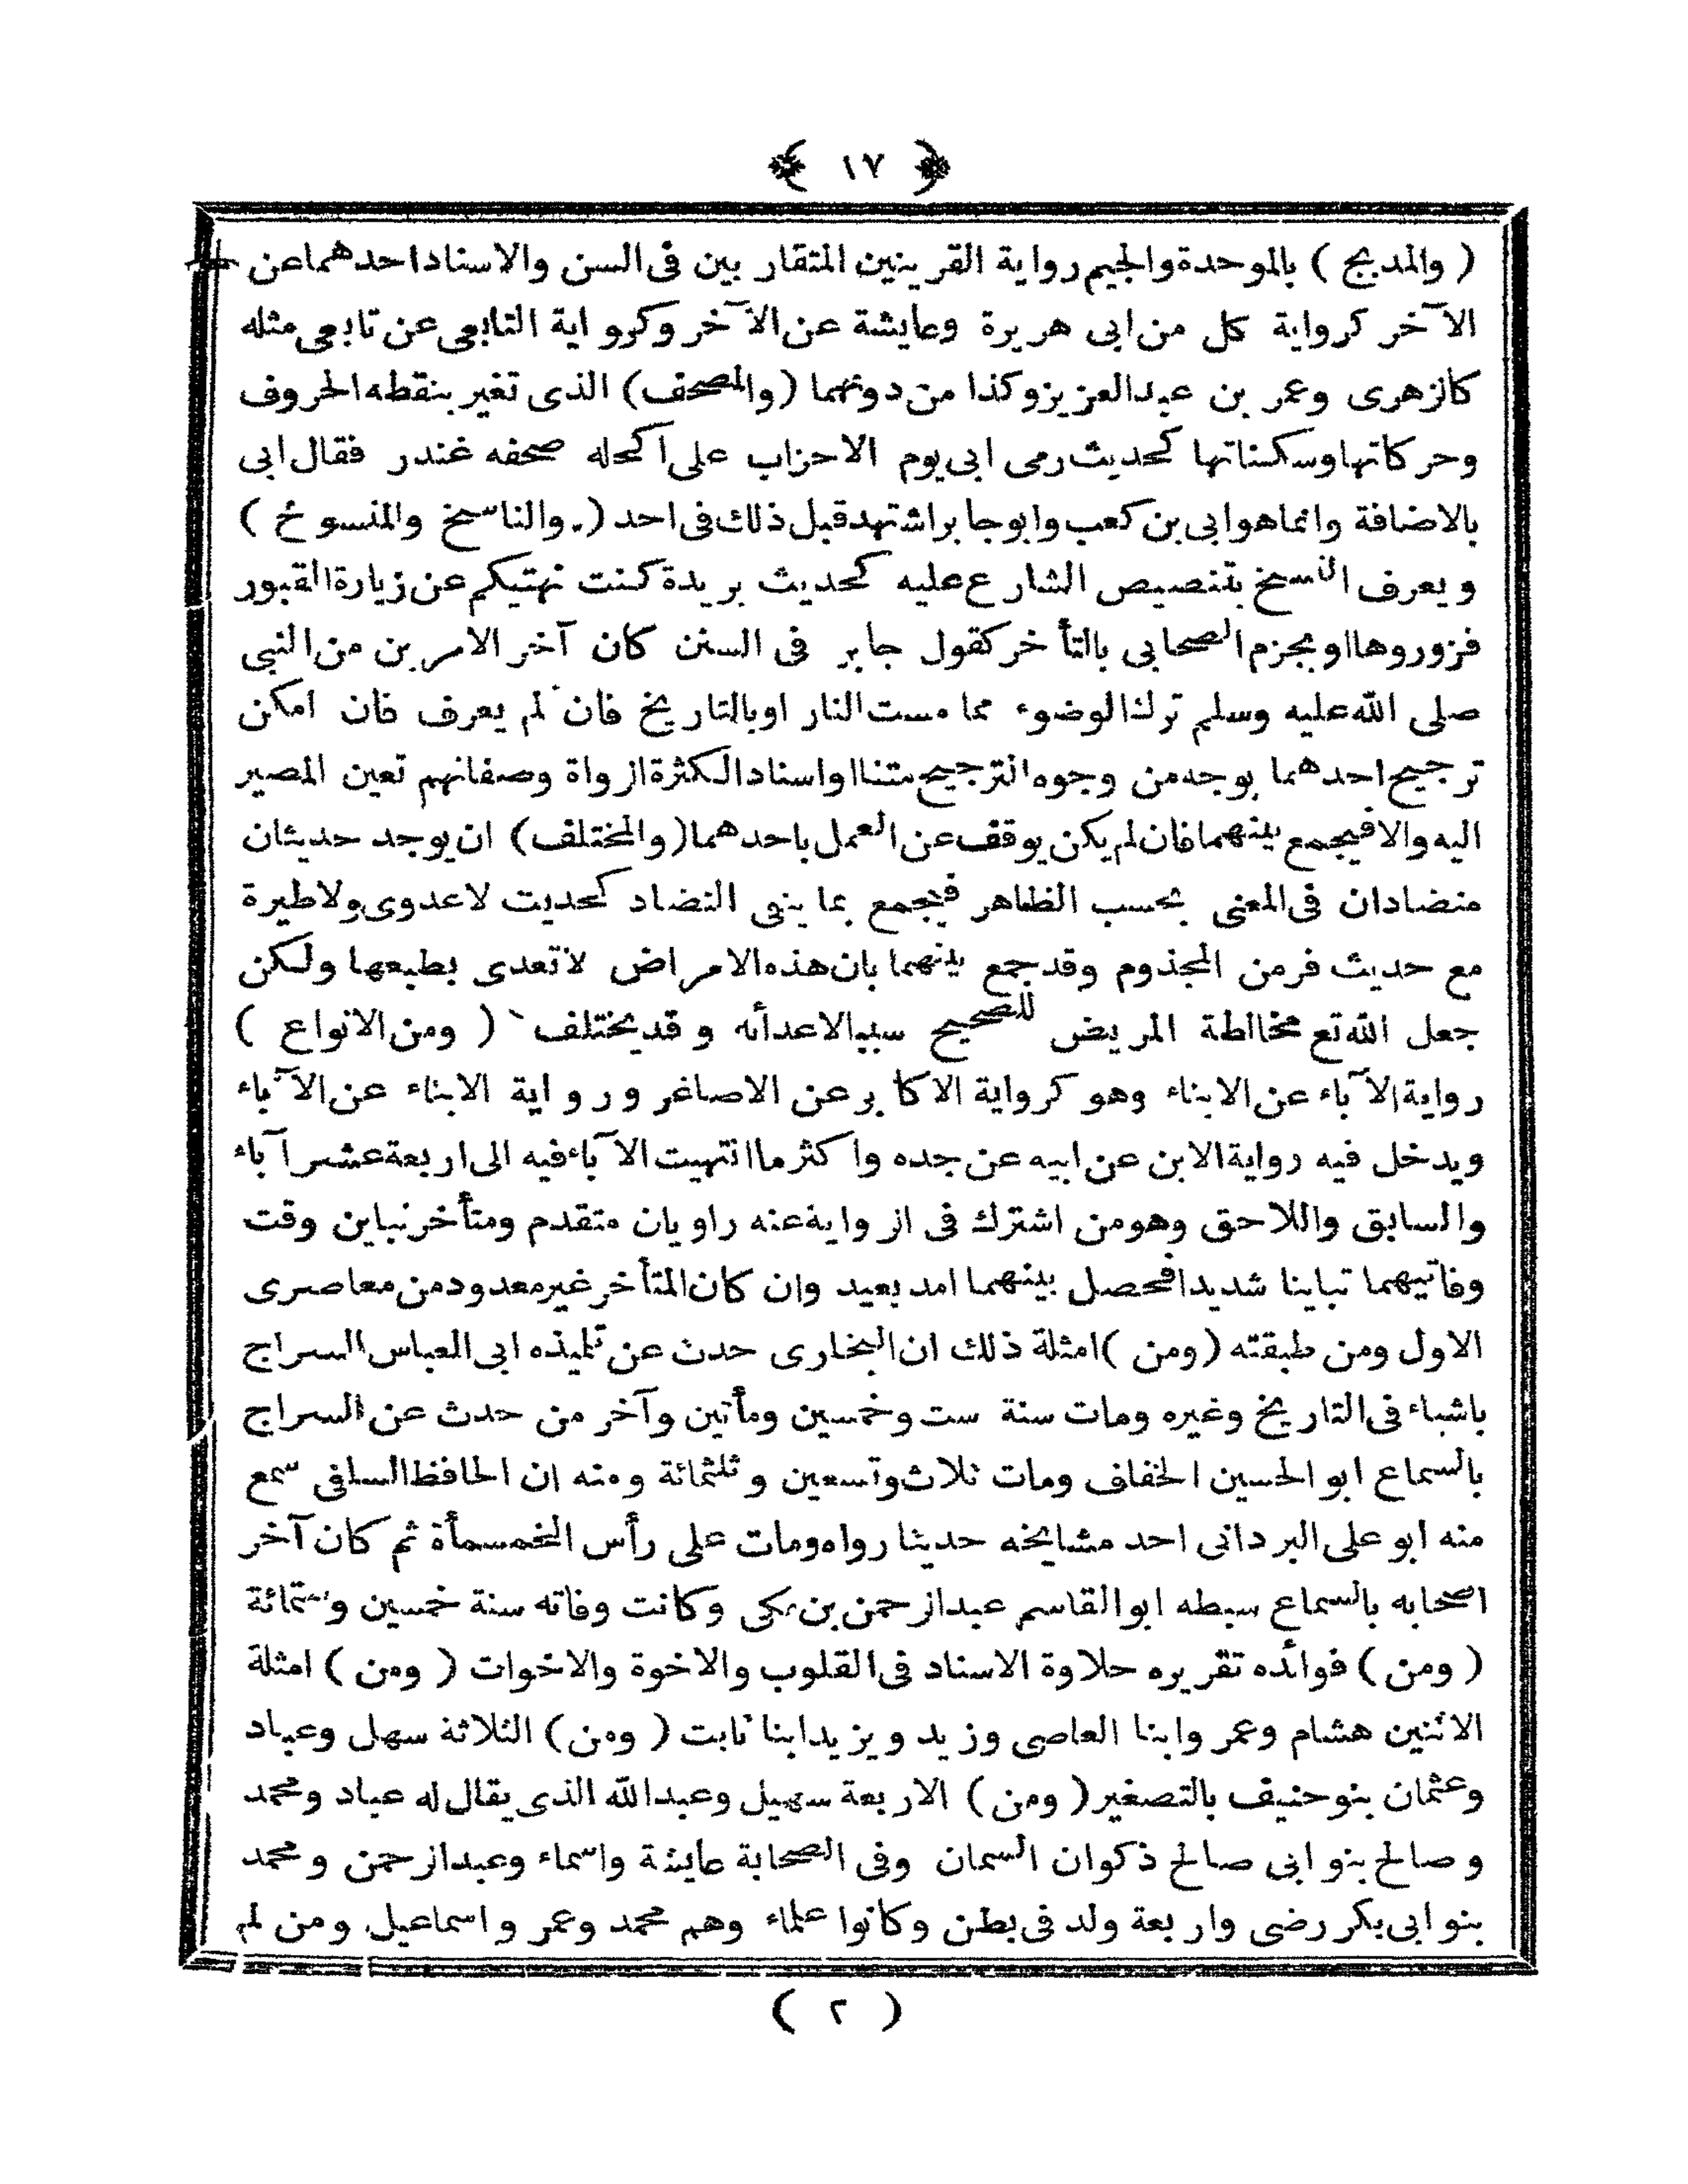 ﴿ ١٧ ﴾
( والمدبج ) بالموحدة والجيم رواية القرينين المتقاربين فى السن والاسناد احدهما عن
الآخر كرواية كل من ابى هريرة وعايشة عن الآخر وكرواية التابعى عن تابعى مثله
كالزهرى وعمر بن عبدالعزيز وكذا من دونهما (والمصحف) الذى تغير بنقطه الحروف
وحركاتها وسكناتها كحديث رمى ابى يوم الاحزاب على اكحله صحفه غندر فقال ابى
بالاضافة وانما هو ابى بن كعب وابو جابر اشتهد قبل ذلك فى احد (. والناسخ والمنسوخ )
ويعرف النسخ بتنصيص الشارع عليه كحديث بريدة كنت نهيتكم عن زيارة القبور
فزوروها او بجزم الصحابى بالتأخر كقول جابر فى السنن كان آخر الامرين من النبى
صلى الله عليه وسلم ترك الوضوء مما مست النار او بالتاريخ فان لم يعرف فان امكن
ترجيح احدهما بوجه من وجوه الترجيح متنا او اسناد الكثرة الرواة وصفاتهم تعين المصير
اليه والا فيجمع بينهما فان لم يكن يوقف عن العمل باحدهما (والمختلف) ان يوجد حديثان
متضادان فى المعنى بحسب الظاهر فيجمع بما ينفى التضاد كحديت لاعدوى ولاطيرة
مع حديث فر من المجذوم وقد جمع بينهما بان هذه الامراض لا تعدى بطبعها ولكن
جعل الله تع مخالطة المريض للصحيح سببا لاعدائه وقد يختلف ( ومن الانواع )
رواية الآباء عن الابناء وهو كرواية الاكابر عن الاصاغر ورواية الابناء عن الآباء
ويدخل فيه رواية الابن عن ابيه عن جده واكثر ما انتهيت الآباء فيه الى اربعة عشر آباء
والسابق واللاحق وهو من اشترك فى الرواية عنه راويان متقدم ومتأخر تباين وقت
وفاتيهما تباينا شديدا فحصل بينهما امد بعيد وان كان المتأخر غير معدود من معاصرى
الاول ومن طبقته (ومن ) امثلة ذلك ان البخارى حدث عن تلميذه ابى العباس السراج
باشياء فى التاريخ وغيره ومات سنة ست وخمسين ومأتين وآخر من حدث عن السراج
بالسماع ابو الحسين الخفاف ومات ثلاث وتسعين وثلثمائة ومنه ان الحافظ السلفى سمع
منه ابو على البردانى احد مشايخه حديثا رواه ومات على رأس الخمسمأة ثم كان آخر
اصحابه بالسماع سبطه ابو القاسم عبدالرحمن بن مكى وكانت وفاته سنة خمسين وستمائة
( ومن ) فوائده تقريره حلاوة الاسناد فى القلوب والاخوة والاخوات ( ومن ) امثلة
الاثنين هشام وعمر وابنا العاصى وزيد ويزيد ابنا ثابت ( ومن) الثلاثة سهل وعباد
وعثمان بنو حنيف بالتصغير ( ومن ) الاربعة سهيل وعبدالله الذى يقال له عباد ومحمد
وصالح بنو ابى صالح ذكوان السمان وفى الصحابة عايشة واسماء وعبدالرحمن ومحمد
بنو ابى بكر رضى واربعة ولد فى بطن وكانوا علماء وهم محمد وعمر واسماعيل ومن لم
( ٢ )